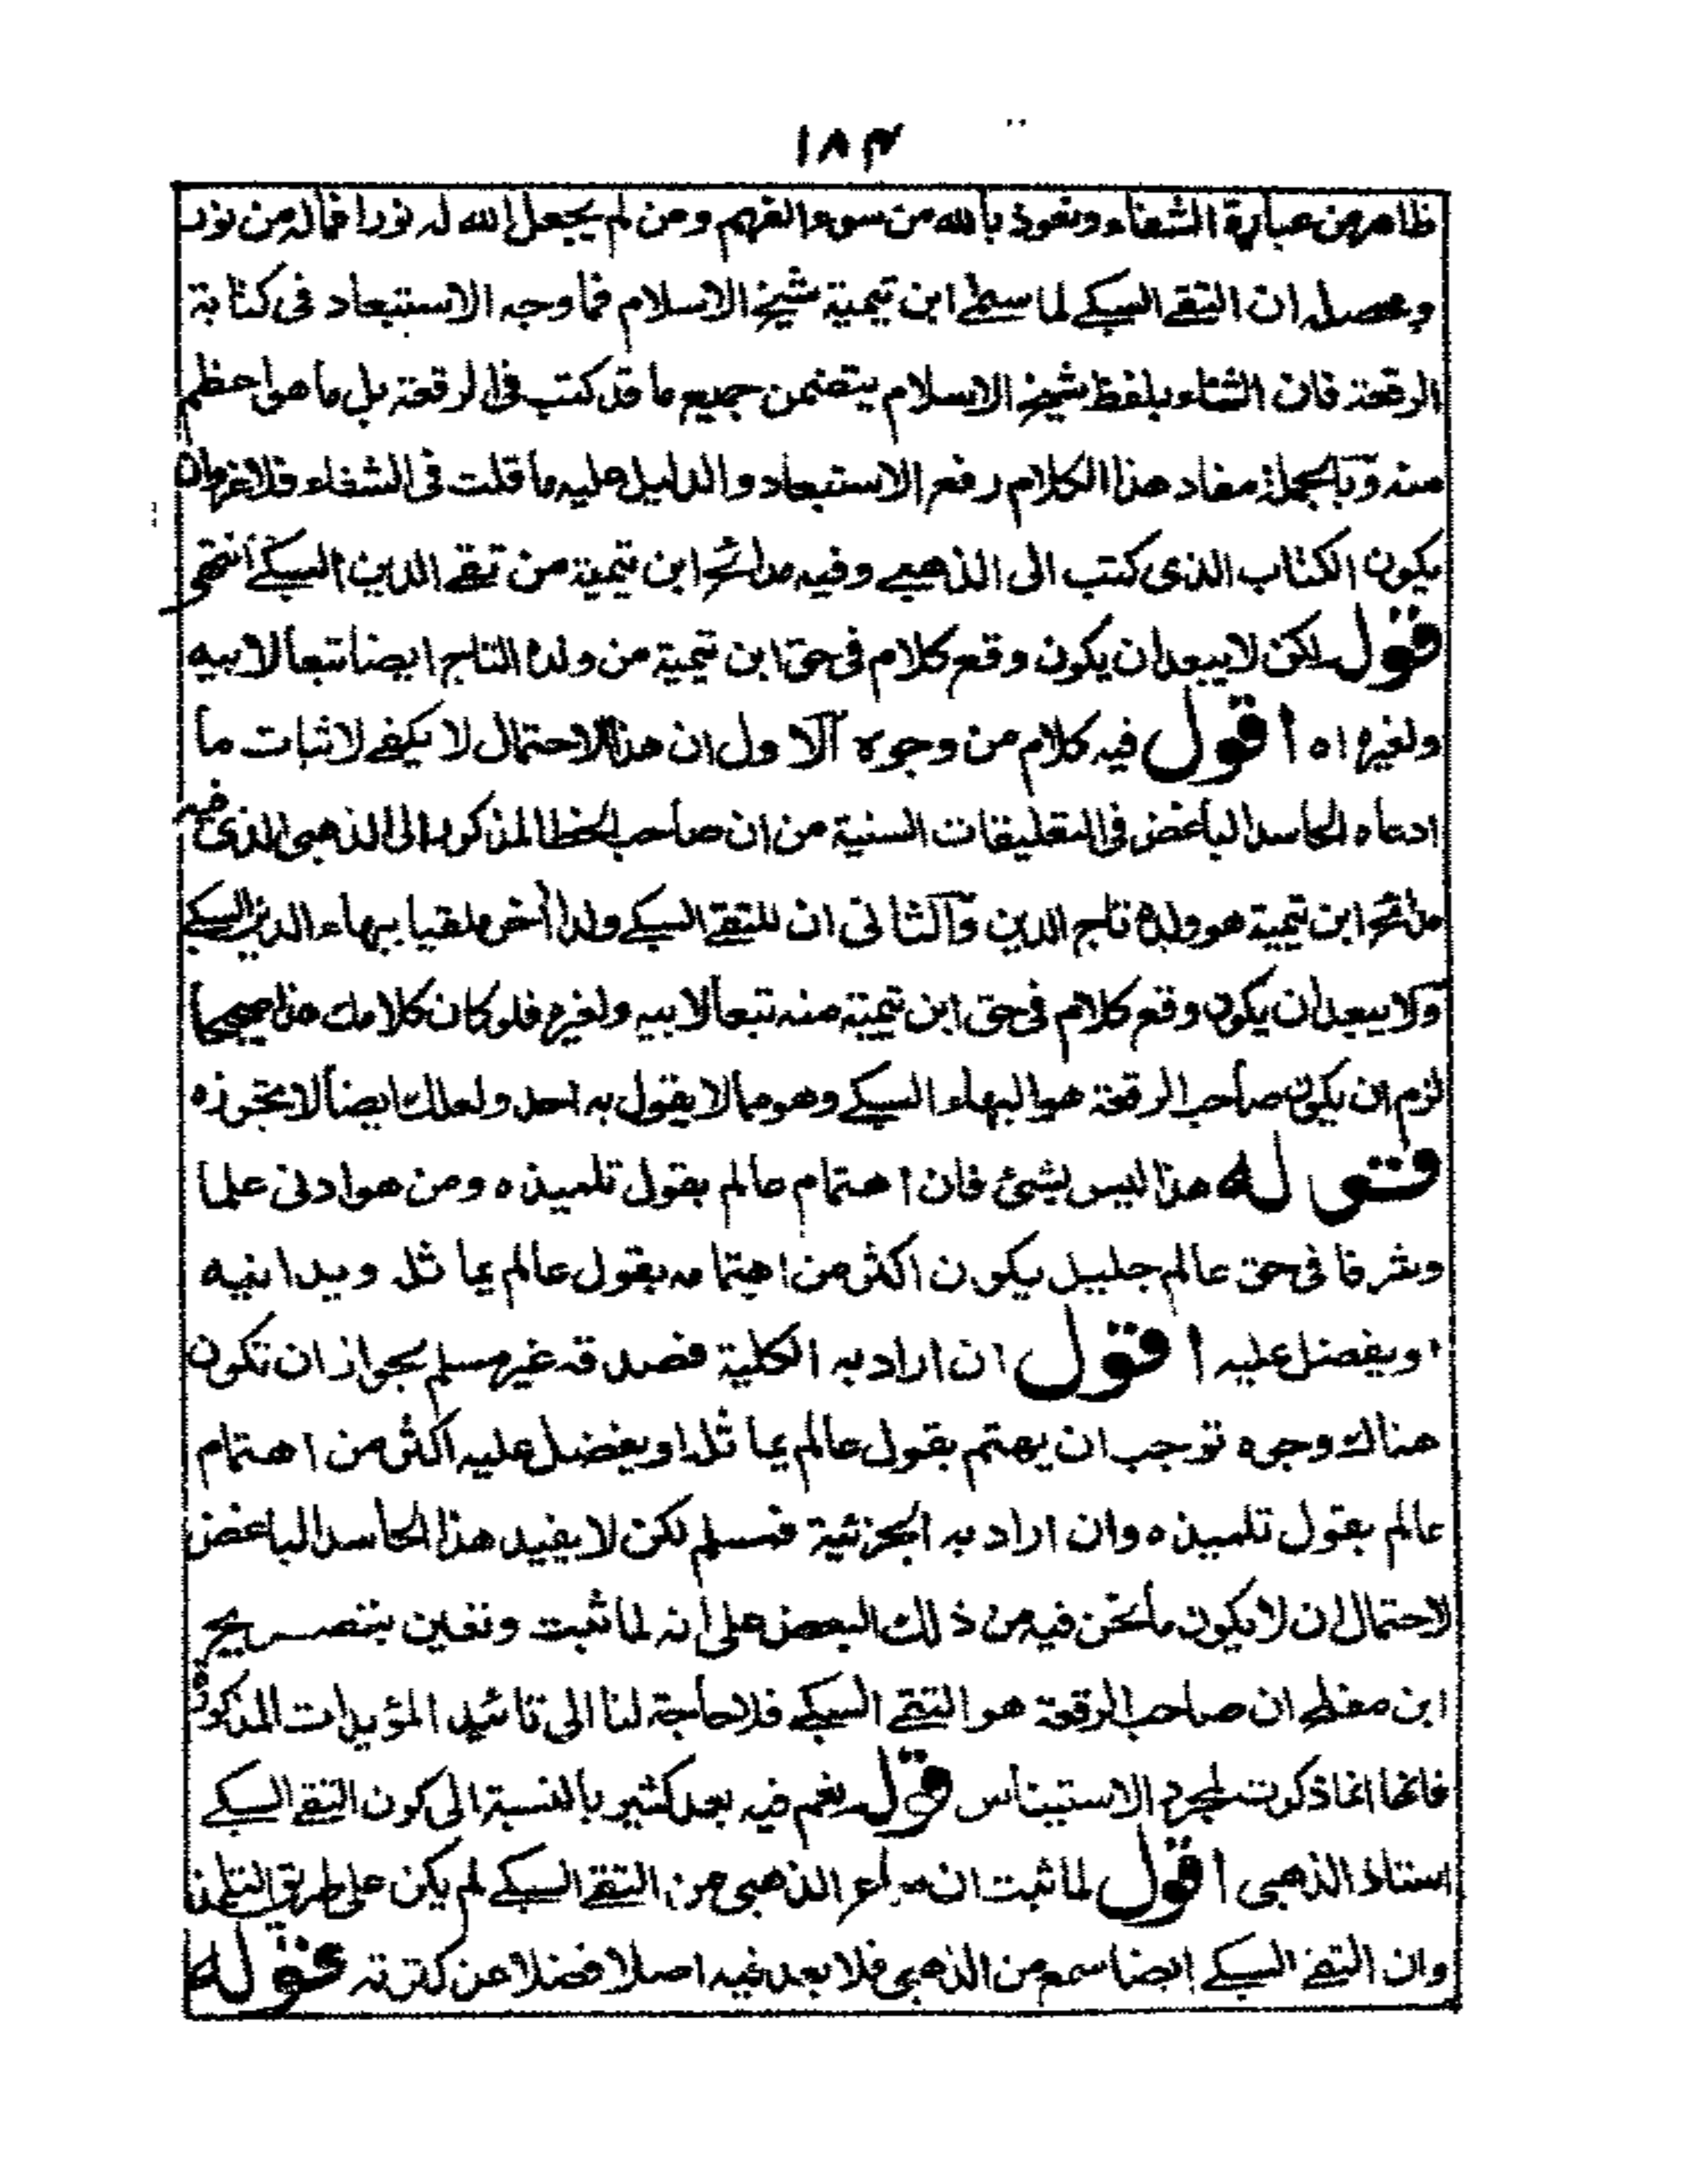 ١٨٤
ظاهر من عبارة الشفاء ونعوذ بالله من سوء الفهم ومن لم يجعل الله له نورا فماله من نور
ومحصله ان التقے السبکے لما سمى ابن تيمية شيخ الاسلام فما وجه الاستبعاد فى كتابة
الرقعة فان الثناء بلفظ شيخ الاسلام يتضمن جميع ما قد كتب فى الرقعة بل ما هو اعظم
منه وبالجملة مفاد هذا الكلام رفع الاستبعاد والدليل عليه ما قلت فى الشفاء فلا غرو ان
يكون الكتاب الذى كتب الى الذهبے وفيه مدائح ابن تيمية من تقے الدين السبکے انتهى
قوله لكن لا يبعد ان يكون وقع كلام فى حق ابن تيمية من ولده التاج ايضا تبعا لابيه
ولغيره اه اقول فيه كلام من وجوه الاول ان هذا الاحتمال لا يكفے لاثبات ما
ادعاه الحاسد الباغض فى التعليقات السنية من ان صاحب الخط المذكور الى الذهبى الذى فيه
مدائح ابن تيمية هو ولده تاج الدين والثانى ان للتقے السبکے ولدا أخر ملقبا ببهاء الدين السبکے
ولا يبعد ان يكون وقع كلام فى حق ابن تيمية منه تبعا لابيه ولغيره فلو كان كلامك هذا صحيحا
لزم ان يكون صاحب الرقعة هو البهاء السبکے وهو مما لا يقول به احد ولعلك ايضا لا تجوزه
قوله هذا ليس بشئ فان اهتمام عالم بقول تلميذه ومن هو ادنى علما
وشرفا فى حق عالم جليل يكون اكثر من اهتمامه بقول عالم يماثله ويدانيه
او يفضل عليه اقول ان اراد به الكلية فصدقه غير مسلم بجواز ان تكون
هناك وجوه توجب ان يهتم بقول عالم يماثله او يفضل عليه اكثر من اهتمام
عالم بقول تلميذه وان اراد به الجزئية فمسلم لكن لا يفيد هذا الحاسد الباغض
لاحتمال ان لا يكون ما نحن فيه من ذلك البعض على انه لما ثبت وتعين بتصريح
ابن مفلح ان صاحب الرقعة هو التقے السبکے فلا حاجة لنا الى تائيد المؤيدات المذكورة
فانها انما ذكرت لمجرد الاستيناس قوله نعم فيه بعد كثير بالنسبة الى كون التقے السبکے
استاذ الذهبى اقول لما ثبت ان سماع الذهبى من التقے السبکے لم يكن على طريق التلمذ
وان التقے السبکے ايضا سمع من الذهبى فلا بعد فيه اصلا فضلا عن كثرته قوله